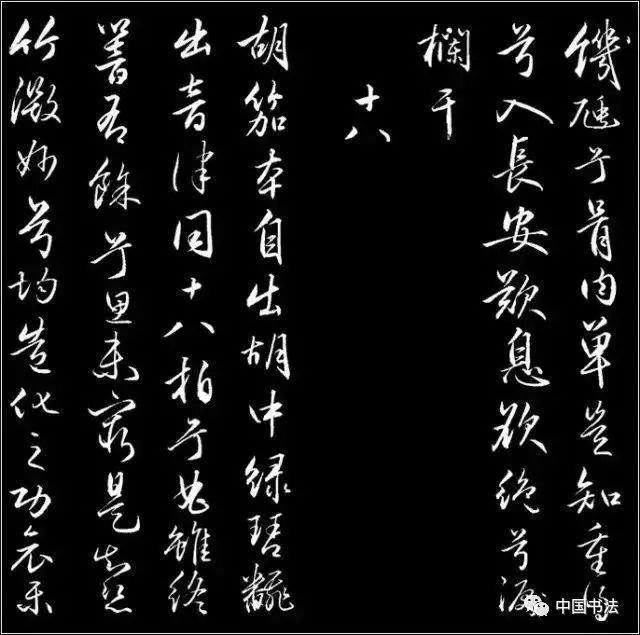 饑兮骨肉単豈知重得
兮入長安歎息欲絶兮淚
欄干
十八
胡笳本自出胡中緑琴翻
出音律同十八拍兮曲雖終
響有餘兮思未窮是知絲
竹微妙兮均造化之功哀樂
中国书法